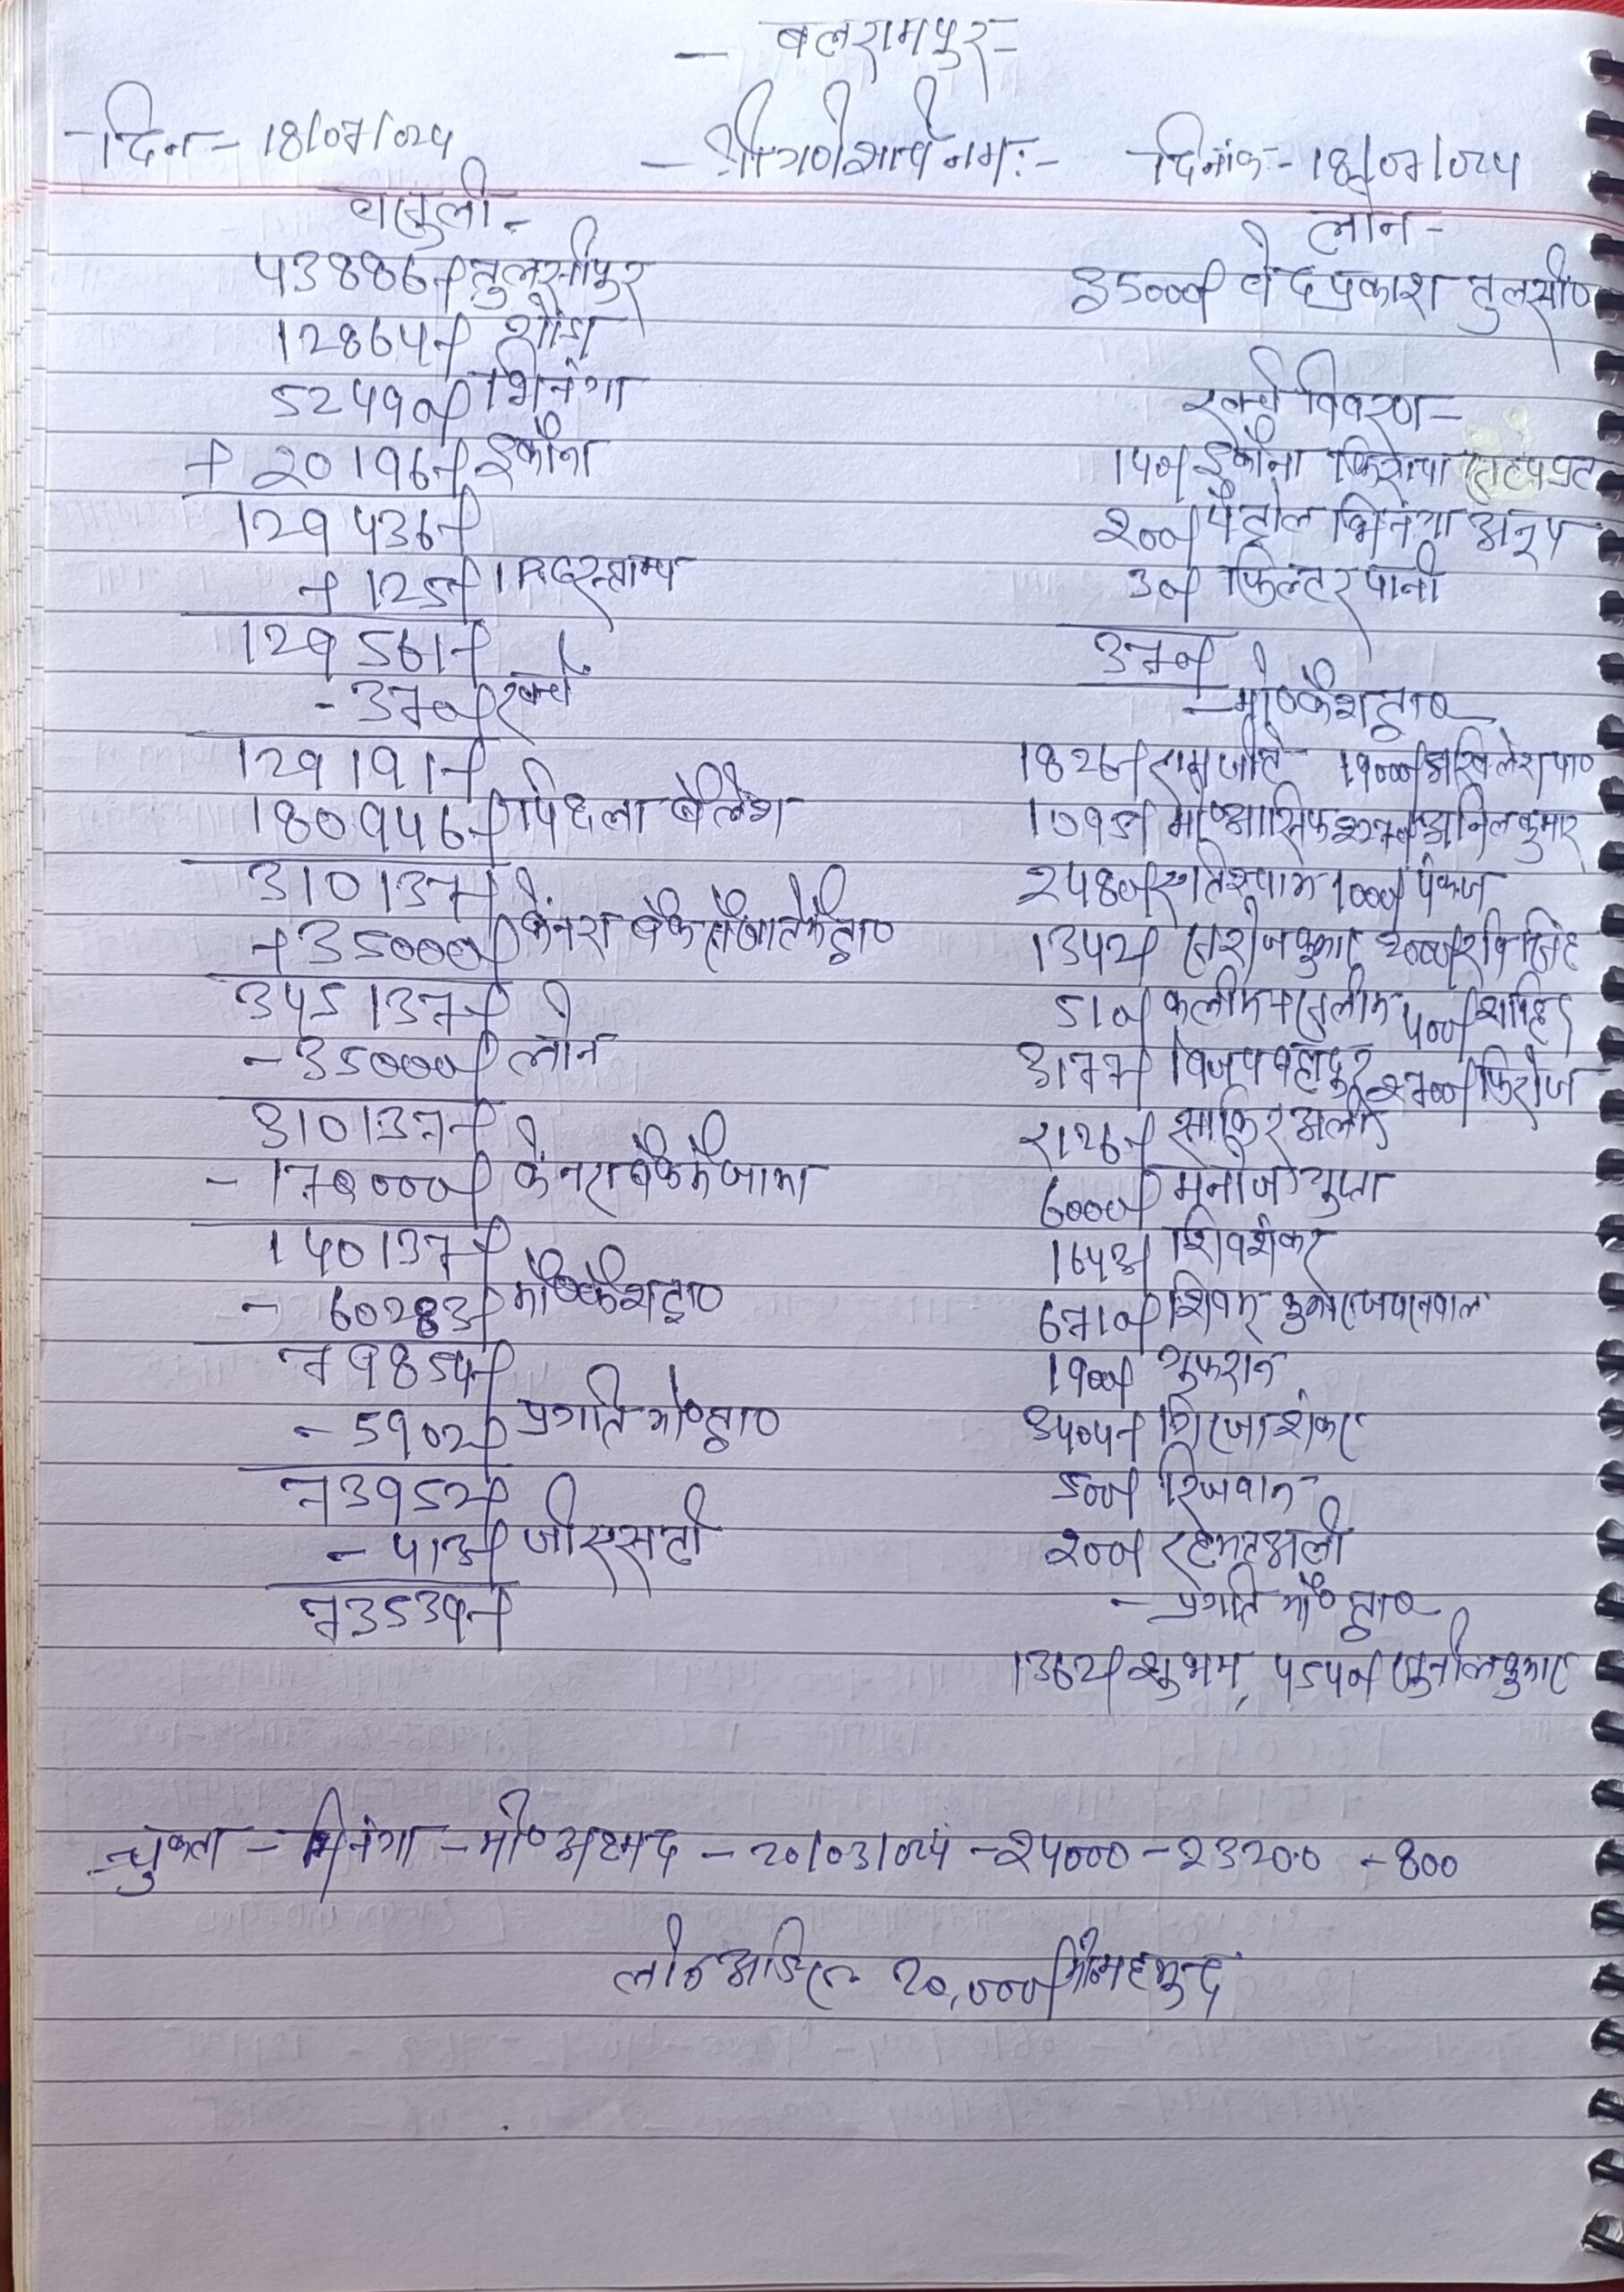 - बलरामपुर -
- दिन - 18/07/024 - श्री गणेशाय नमः - दिनांक - 18/07/024
वसुली -
43886/- तुलसीपुर
12864/- गोंडा
52490/- भिनगा
+ 20196/- इकौना
129436/-
+ 125/- स्टाम्प
129561/-
- 370/- खर्च
129191/-
180946/- पिछला बैलेंश
310137/-
+ 35000/- केनरा बैंक से खाते के द्वा०
345137/-
- 35000/- लोन
310137/-
- 170000/- केनरा बैंक में जामा
140137/-
- 60283/- मो० कैश द्वा०
79854/-
- 5902/- प्रगति मो० द्वा०
73952/-
- 413/- जीएसटी
73539/-
लोन -
35000/- वेद प्रकाश तुलसी०
खर्च विवरण -
140/- इकौना किराया
200/- पेट्रोल भिनगा अनुप
30/- फिल्टर पानी
370/-
- मो० कैश द्वा० -
1826/- रामजीत 19000/- अखिलेश पा०
1795/- मो० आसिफ 2270/- अनिल कुमार
2480/- 1000/- पंकज
1342/- सरोज कुमार 2000/- रवि सिंह
510/- कलीम + सलीम 400/- शाहिद
3177/- विजय बहादुर 2700/- फिरोज
2126/- साकिर अली
6000/- मनोज गुप्ता
1643/- शिवशंकर
6710/- शिवम कुमार जयसवाल
1900/- गुफरान
3404/- गिरजाशंकर
500/- रिजवान
200/- रहमत अली
- प्रगति मो० द्वा० -
1362/- शुभम, 4540/- सुनील कुमार
- चुकता - भिनगा - मो० अहमद - 20/03/024 - 24000 - 23200 - 800
लोन आर्डर - 20,000/- मो० महमुद